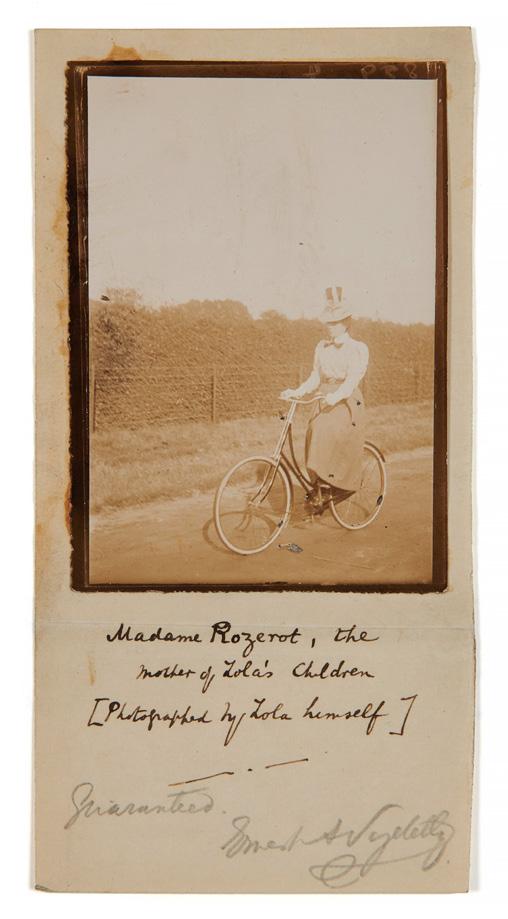 Madame Rozerot, the
mother of Zola's Children
[Photographed by Zola himself]
Guaranteed.
Ernest A Vizetelly